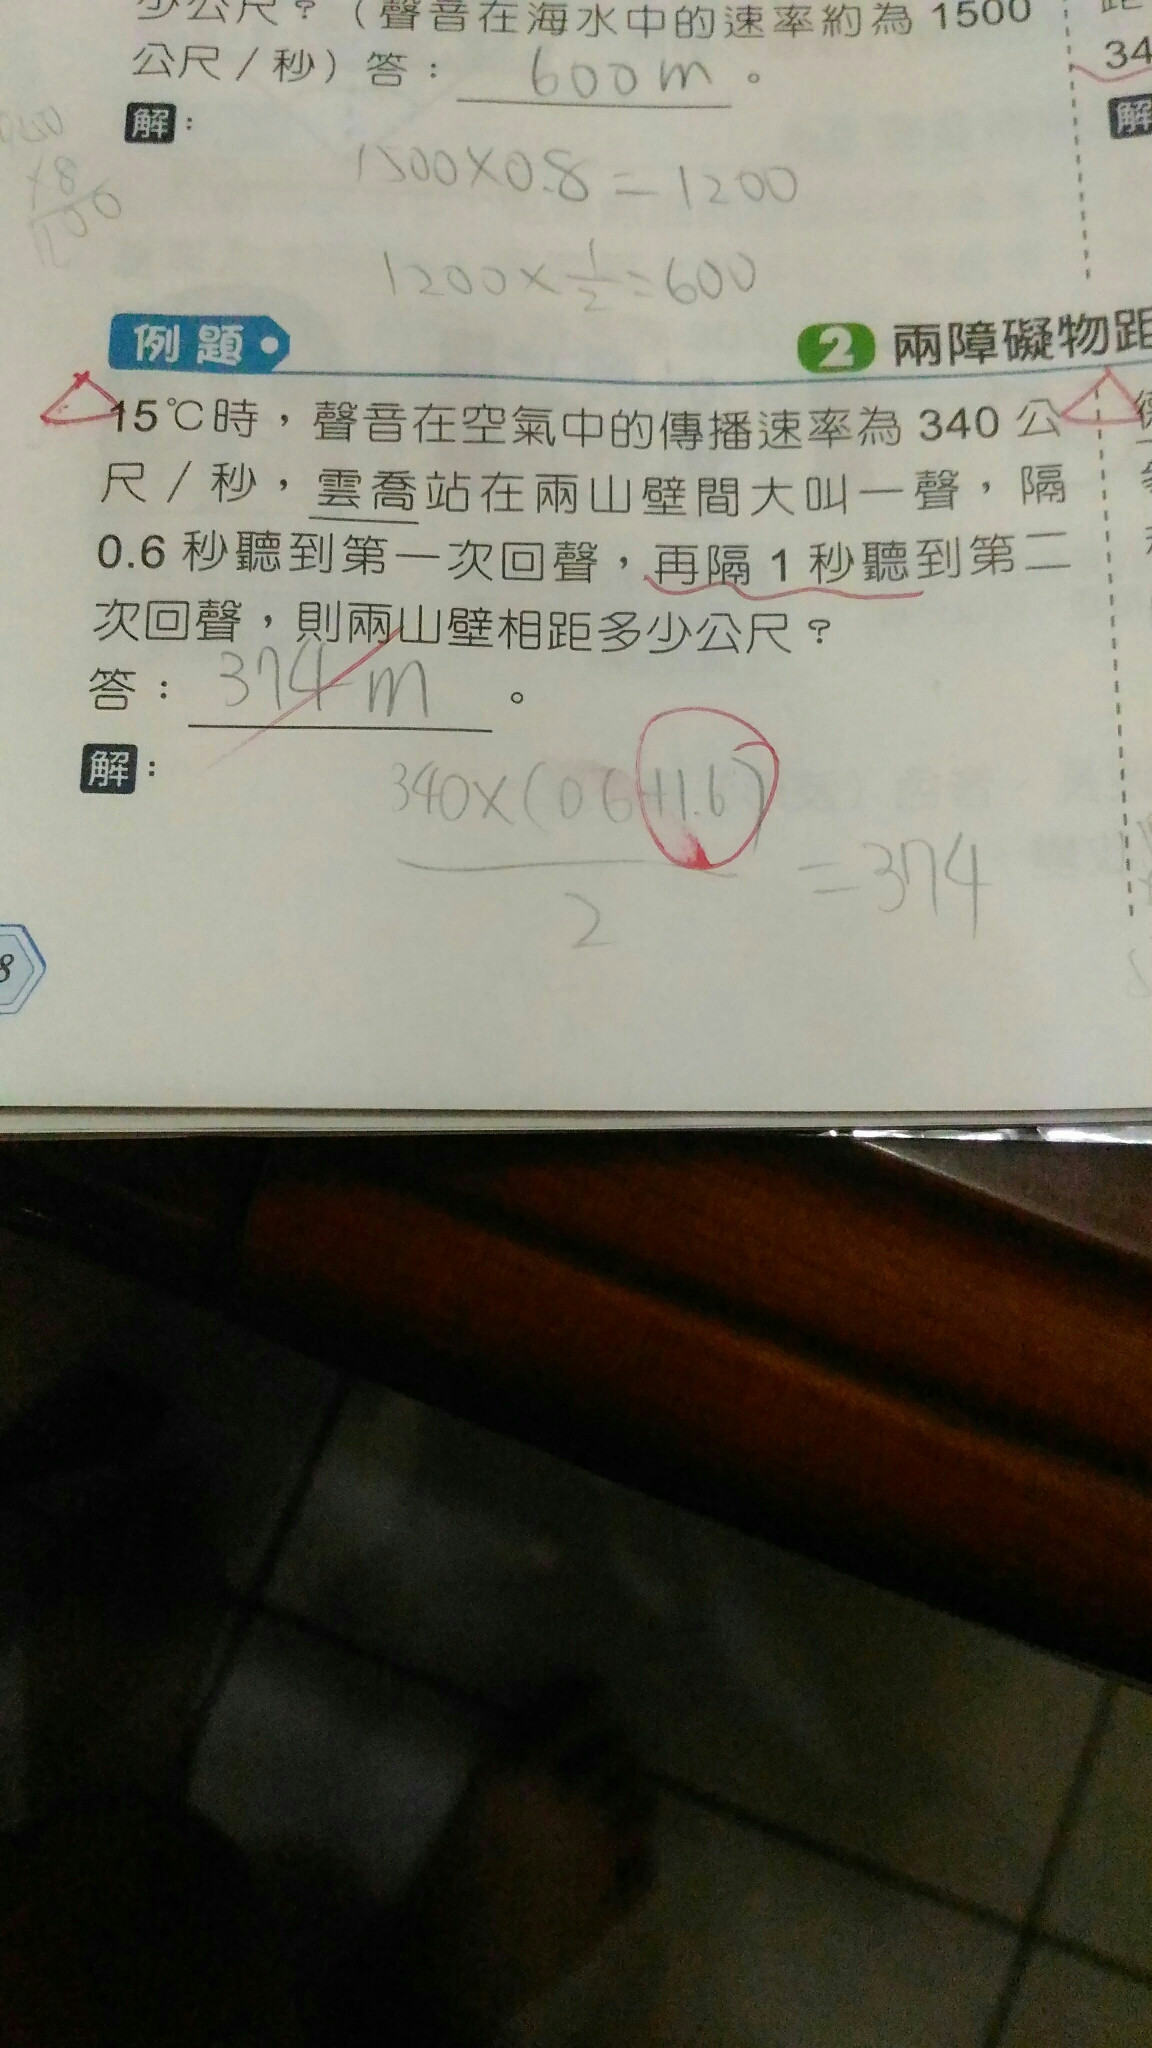 少公尺？（聲音在海水中的速率約為 1500
公尺／秒）答： 600m 。
解：
1500×0.8=1200
×8
1200×1/2=600
例題
2 兩障礙物距
15℃時，聲音在空氣中的傳播速率為 340 公
尺／秒，雲喬站在兩山壁間大叫一聲，隔
0.6 秒聽到第一次回聲，再隔 1 秒聽到第二
次回聲，則兩山壁相距多少公尺？
答： 374m 。
解：
340×(0.6+1.6)
2
=374
8
34
解